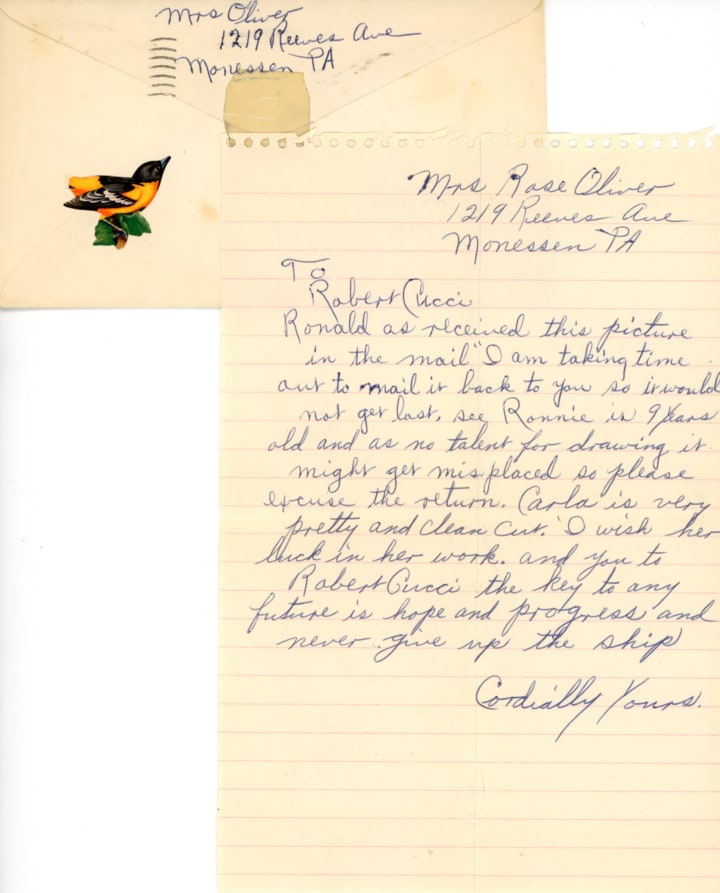 Mrs Oliver
1219 Reeves Ave
Monessen PA
Mrs Rose Oliver
1219 Reeves Ave
Monessen PA
To
Robert Cucci
Ronald as received this picture
in the mail "I am taking time
out to mail it back to you so it would
not get lost, see Ronnie is 9 years
old and as no talent for drawing it
might get misplaced so please
excuse the return. Carla is very
pretty and clean cut. I wish her
luck in her work. and you to
Robert Cucci the key to any
future is hope and progress and
never give up the ship
Cordially Yours.